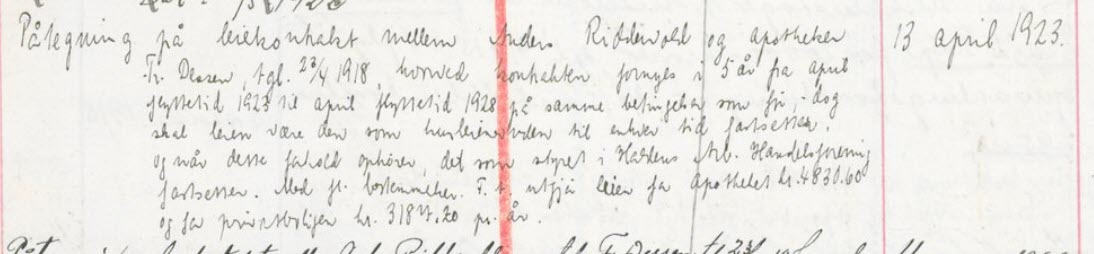 Påtegning på leiekontrakt mellem Anders Riddervold og apotheker 13 april 1923.
Fr. Dessen, tgl. 23/4 1918 hvorved kontrakten fornyes i 5 år fra april
flyttetid 1923 til april flyttetid 1928 på samme betingelser som før, - dog
skal leien være den som husleienevnden til enhver tid fastsetter.
og når dette forhold ophører, det som styret i Haldens Arb. Handelsforening
fastsetter. Med fl. bestemmelser. F. t. utgjør leien for apotheket kr. 4830.60
og for privatboligen kr. 3184.20 pr. år.